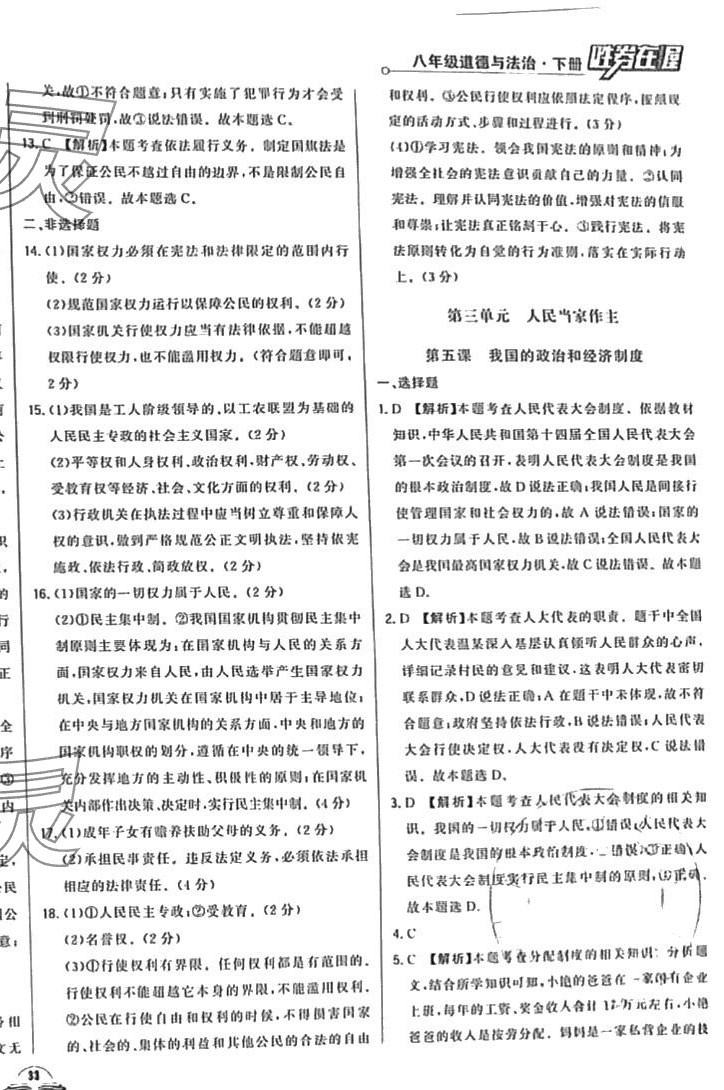 八年级道德与法治·下册 胜券在握
关,故①不符合题意;只有实施了犯罪行为才会
受到刑罚处罚,故③说法错误。故本题选C。
13. C 【解析】本题考查依法履行义务。制定国旗法是
为了保证公民不越过自由的边界,不是限制公民自
由,②错误。故本题选C。
二、非选择题
14. (1)国家权力必须在宪法和法律限定的范围内行
使。(2分)
(2)规范国家权力运行以保障公民的权利。(2分)
(3)国家机关行使权力应当有法律依据,不能超越
权限行使权力,也不能滥用权力。(符合题意即可,
2分)
15. (1)我国是工人阶级领导的,以工农联盟为基础的
人民民主专政的社会主义国家。(2分)
(2)平等权和人身权利、政治权利,财产权、劳动权、
受教育权等经济、社会、文化方面的权利。(2分)
(3)行政机关在执法过程中应当树立尊重和保障人
权的意识,做到严格规范公正文明执法,坚持依宪
施政、依法行政、简政放权。(2分)
16. (1)国家的一切权力属于人民。(2分)
(2)①民主集中制。②我国国家机构贯彻民主集中
制原则主要体现为:在国家机构与人民的关系方
面,国家权力来自人民,由人民选举产生国家权力
机关,国家权力机关在国家机构中居于主导地位;
在中央与地方国家机构的关系方面,中央和地方的
国家机构职权的划分,遵循在中央的统一领导下,
充分发挥地方的主动性、积极性的原则;在国家机
关内部作出决策、决定时,实行民主集中制。(4分)
17. (1)成年子女有赡养扶助父母的义务。(2分)
(2)承担民事责任。违反法定义务,必须依法承担
相应的法律责任。(2分)
18. (1)①人民民主专政;②受教育。(2分)
(2)名誉权。(2分)
(3)①行使权利有界限。任何权利都是有范围的,
公民行使权利不能超越它本身的界限,不能滥用权利。
②公民在行使自由和权利的时候,不得损害国家
的、社会的、集体的利益和其他公民的合法的自由
33
和权利。③公民行使权利应依照法定程序,按照规
定的活动方式、步骤和过程进行。(3分)
(4)①学习宪法。领会我国宪法的原则和精神;为
增强全社会的宪法意识贡献自己的力量。②认同
宪法。理解并认同宪法的价值,增强对宪法的信服
和尊崇;让宪法真正铭刻于心。③践行宪法。将宪
法原则转化为自觉的行为准则,落实在实际行动
上。(3分)
第三单元 人民当家作主
第五课 我国的政治和经济制度
一、选择题
1. D 【解析】本题考查人民代表大会制度。依据教材
知识,中华人民共和国第十四届全国人民代表大会
第一次会议的召开,表明人民代表大会制度是我国
的根本政治制度,故D说法正确;我国人民是间接行
使管理国家和社会权力的,故A说法错误;国家的
一切权力属于人民,故B说法错误;人民代表大会
是我国最高国家权力机关,故C说法错误。故本题
选D。
2. D 【解析】本题考查人大代表的职责。题干中全国
人大代表温某深入基层认真倾听人民群众的心声,
详细记录村民的意见和建议。这表明人大代表密切
联系群众,D说法正确;A在题干中未体现,故不符
合题意;政府坚持依法行政,B说法错误;人民代表
大会行使决定权,人大代表没有决定权,C说法错
误。故本题选D。
3. D 【解析】本题考查人民代表大会制度的相关知
识。我国的一切权力属于人民,①错误;人民代表大
会制度是我国的根本政治制度,②错误;③④正确,人
民代表大会制度实行民主集中制的原则,④正确。
故本题选D。
4. C
5. C 【解析】本题考查分配制度的相关知识。分析题
文,结合所学知识可知,小艳的爸爸在一家国有企业
上班,每年的工资、奖金收入合计 万元左右,小艳
爸爸的收入属于按劳分配。妈妈是一家私营企业的技